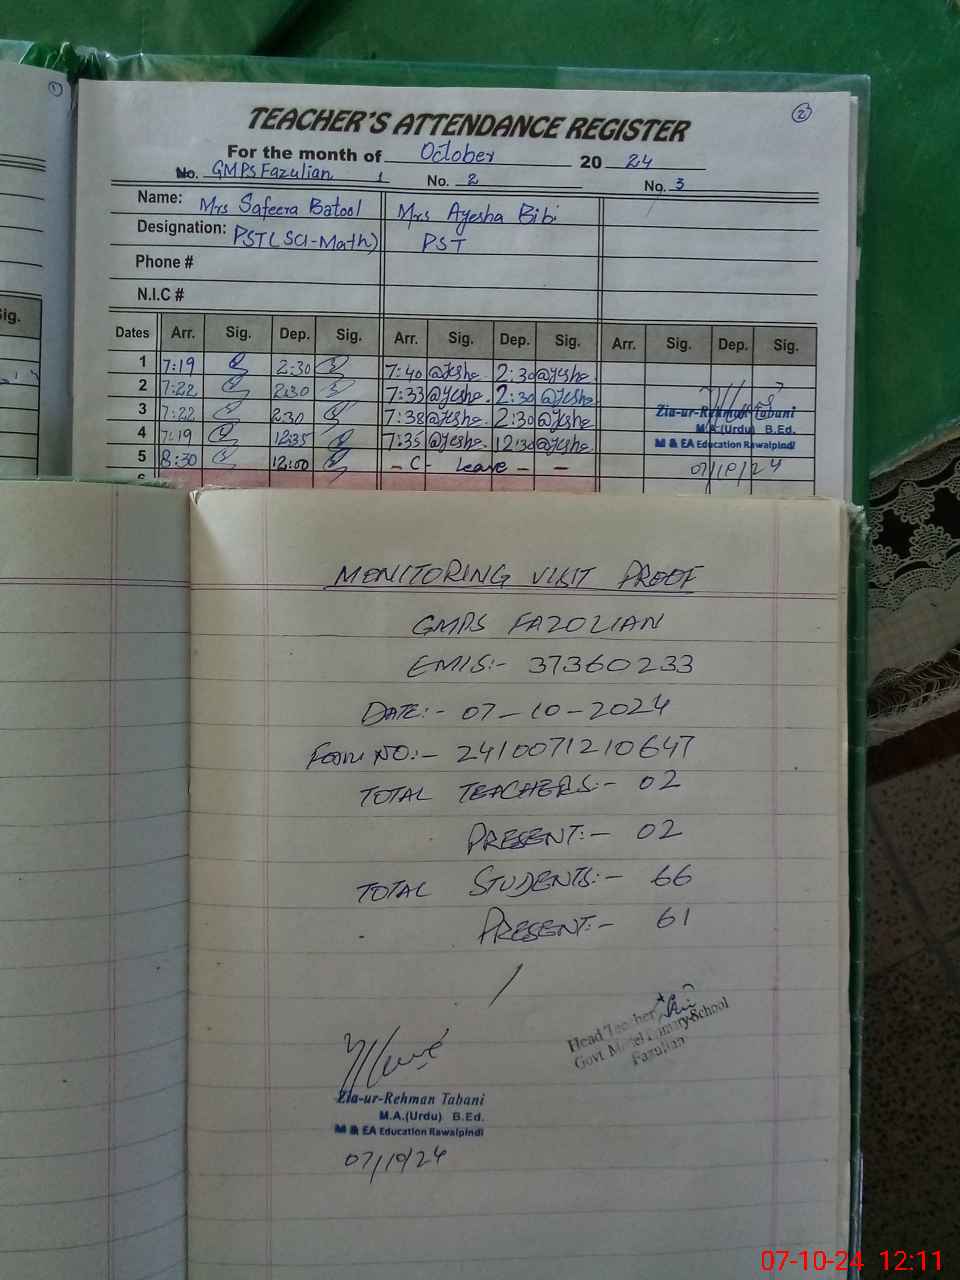 1
2
TEACHER'S ATTENDANCE REGISTER
For the month of October 2024
No. GMPS Fazulian 1 No. 2 No. 3
Name: Mrs Safeera Batool Mrs Ayesha Bibi
Designation: PST (SCI-Math) PST
Phone #
N.I.C #
Sig. Dates Arr. Sig. Dep. Sig. Arr. Sig. Dep. Sig. Arr. Sig. Dep. Sig.
1 7:19 2:30 7:40 @yesha 2:30 @yesha
2 7:22 2:30 7:33 @yesha 2:30 @yesha
3 7:22 2:30 7:38 @yesha 2:30 @yesha
4 7:19 12:35 7:35 @yesha 12:30 @yesha
5 8:30 12:00 - C - Leave - -
6
Zia-ur-Rehman Tabani
M.A.(Urdu) B.Ed.
M & EA Education Rawalpindi
07/10/24
MONITORING VISIT PROOF
GMPS FAZULIAN
EMIS:- 37360233
DATE:- 07-10-2024
FORM NO:- 2410071210647
TOTAL TEACHERS:- 02
PRESENT:- 02
TOTAL STUDENTS:- 66
PRESENT:- 61
Head Teacher
Govt. Model Primary School
Fazulian
Zia-ur-Rehman Tabani
M.A.(Urdu) B.Ed.
M & EA Education Rawalpindi
07/10/24
07-10-24 12:11